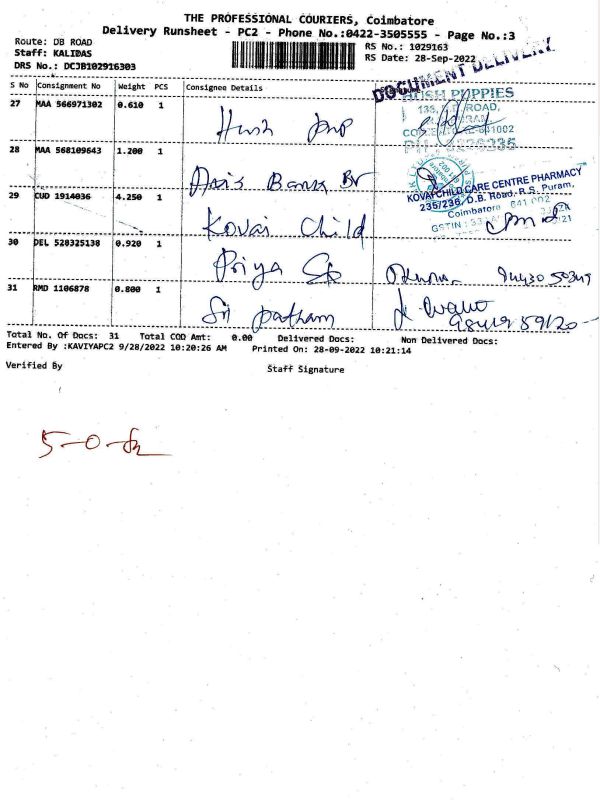 THE PROFESSIONAL COURIERS, Coimbatore
Delivery Runsheet - PC2 - Phone No.:0422-3505555 - Page No.:3
Route: DB ROAD
Staff: KALIDAS
DRS No.: DCJB102916303
RS No.: 1029163
RS Date: 28-Sep-2022
DOCUMENT DELIVERY
S No Consignment No Weight PCS Consignee Details
27 MAA 566971302 0.610 1 Hush
HUSH PUPPIES
ROAD,
28 MAA 568109643 1.200 1 Axis Bank Br
29 CUD 1914036 4.250 1 Kovai Child
KOVAI CHILD CARE CENTRE PHARMACY
235/236, D.B. Road, R.S. Puram,
Coimbatore 641 002
GSTIN : 33
30 DEL 528325138 0.920 1 Priya
31 RMD 1106878 0.800 1 Sri
Total No. Of Docs: 31 Total COD Amt: 0.00 Delivered Docs: Non Delivered Docs:
Entered By :KAVIYAPC2 9/28/2022 10:20:26 AM Printed On: 28-09-2022 10:21:14
Verified By
Staff Signature